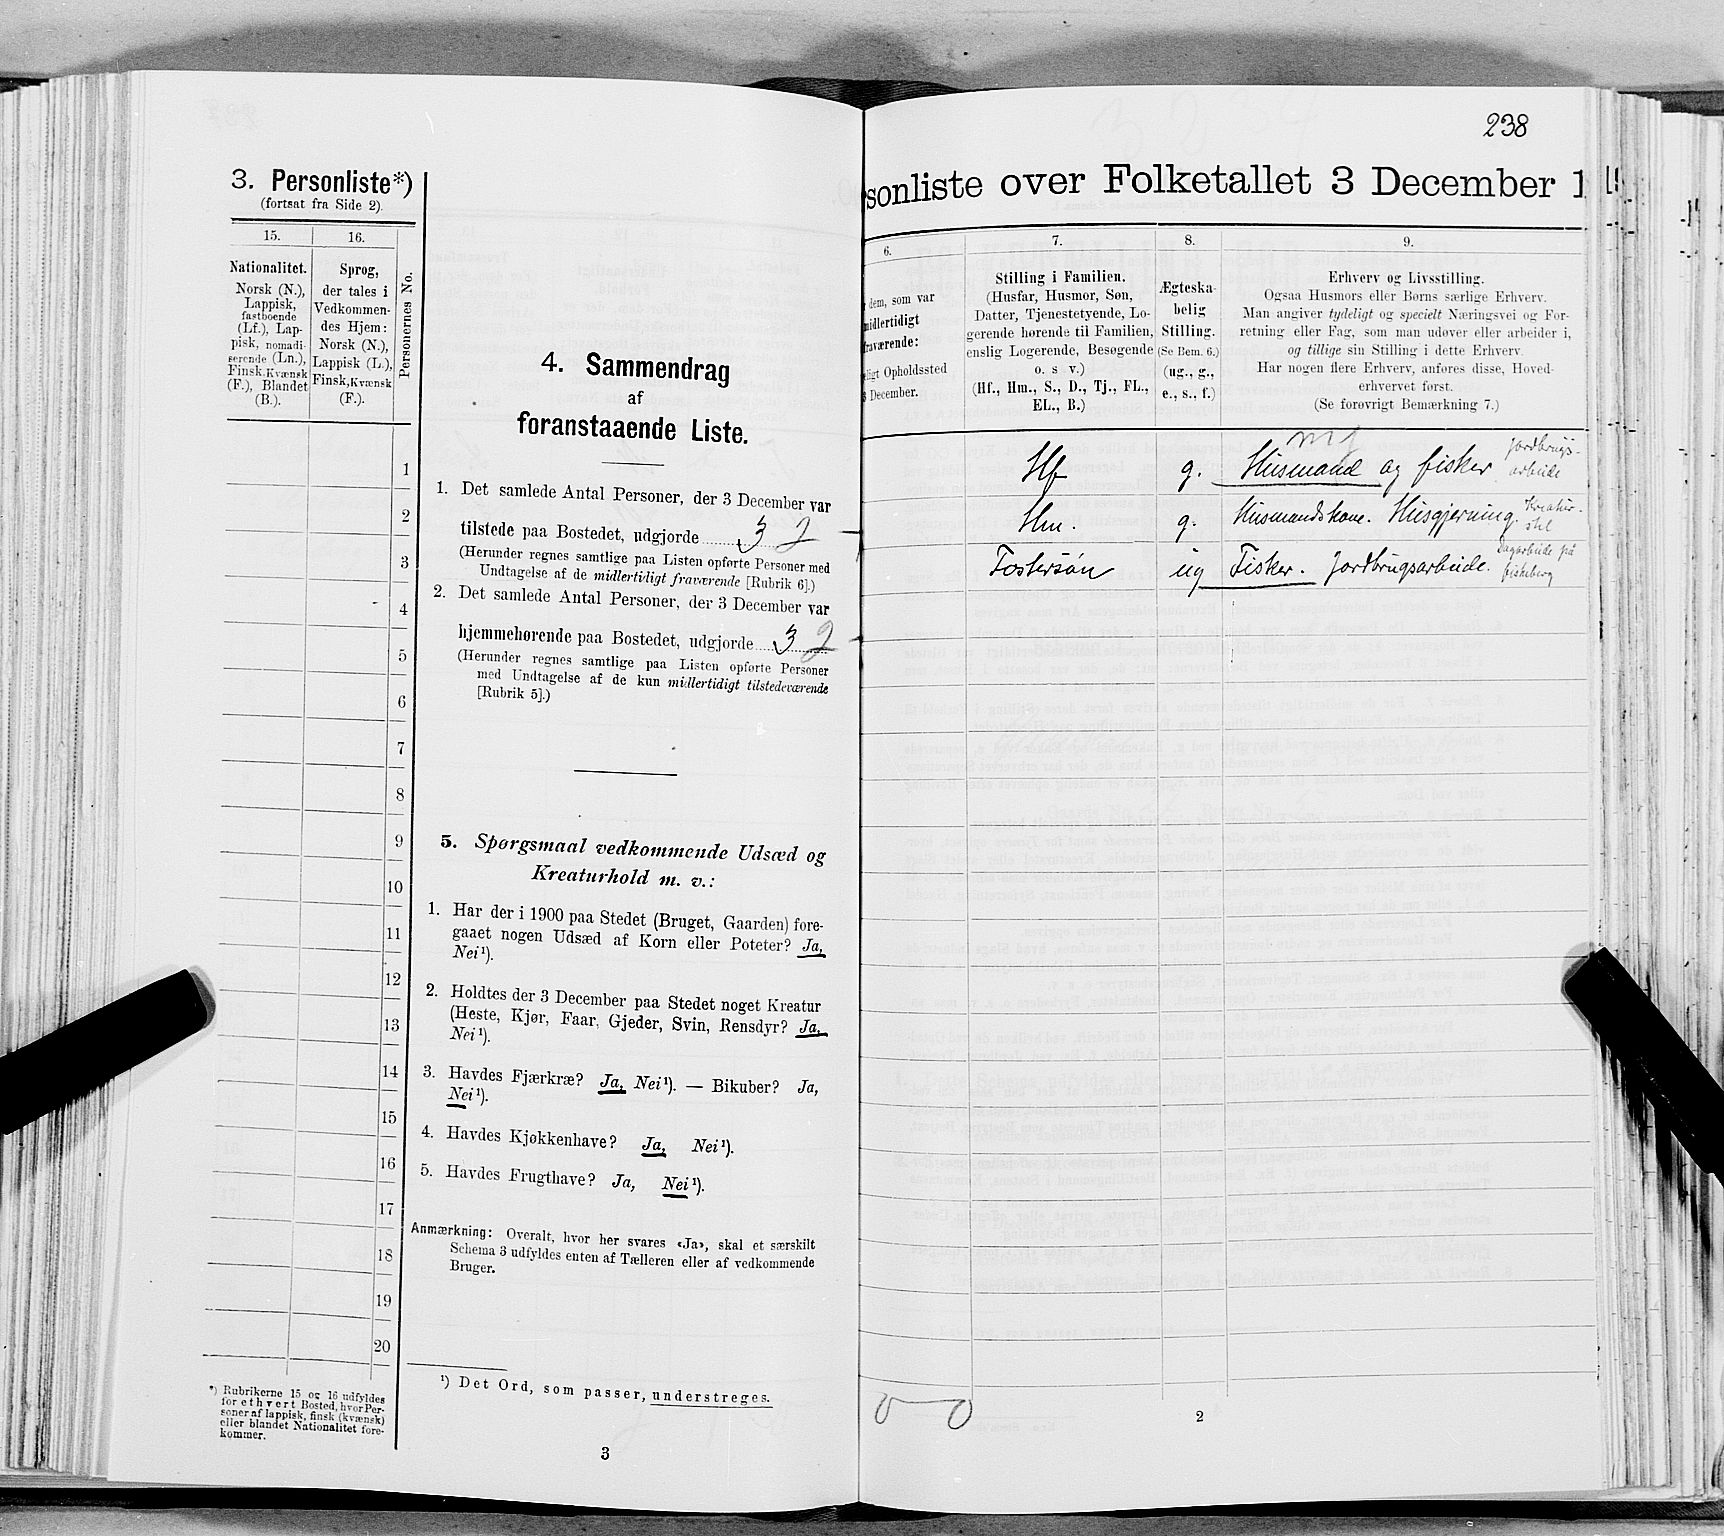 3. Personliste*)
(fortsat fra Side 2).
15.
16.
Nationalitet.
Norsk (N.),
Lappisk,
fastboende
(Lf.), Lap-
pisk, nomadi-
serende (Ln.),
Finsk, Kvænsk
(F.), Blandet
(B.).
Sprog,
der tales i
Vedkommen-
des Hjem:
Norsk (N.),
Lappisk (L.),
Finsk, Kvænsk
(F.).
Personernes No.
1
2
3
4
5
6
7
8
9
10
11
12
13
14
15
16
17
18
19
20
*) Rubrikerne 15 og 16 udfyldes
for ethvert Bosted, hvor Per-
soner af lappisk, finsk (kvænsk)
eller blandet Nationalitet fore-
kommer.
4. Sammendrag
af
foranstaaende Liste.
1. Det samlede Antal Personer, der 3 December var
tilstede paa Bostedet, udgjorde 3 2
(Herunder regnes samtlige paa Listen opførte Personer med
Undtagelse af de midlertidigt fraværende [Rubrik 6].)
2. Det samlede Antal Personer, der 3 December var
hjemmehørende paa Bostedet, udgjorde 3 2
(Herunder regnes samtlige paa Listen opførte Personer
med Undtagelse af de kun midlertidigt tilstedeværende
[Rubrik 5].)
5. Spørgsmaal vedkommende Udsæd og
Kreaturhold m. v.:
1. Har der i 1900 paa Stedet (Bruget, Gaarden) fore-
gaaet nogen Udsæd af Korn eller Poteter? Ja,
Nei¹).
2. Holdtes der 3 December paa Stedet noget Kreatur
(Heste, Kjør, Faar, Gjeder, Svin, Rensdyr? Ja,
Nei¹).
3. Havdes Fjærkræ? Ja, Nei¹). — Bikuber? Ja,
Nei¹).
4. Havdes Kjøkkenhave? Ja, Nei¹).
5. Havdes Frugthave? Ja, Nei¹).
Anmærkning: Overalt, hvor her svares «Ja», skal et særskilt
Schema 3 udfyldes enten af Tælleren eller af vedkommende
Bruger.
¹) Det Ord, som passer, understreges.
3
238
sonliste over Folketallet 3 December 1
6.
dem, som var
midlertidigt
fraværende:
ligt Opholdssted
3 December.
7.
Stilling i Familien.
(Husfar, Husmor, Søn,
Datter, Tjenestetyende, Lo-
gerende hørende til Familien,
enslig Logerende, Besøgende
o. s v.)
(Hf., Hm., S., D., Tj., FL.,
EL., B.)
8.
Ægteska-
belig
Stilling.
(Se Bem. 6.)
(ug., g.,
e., s., f.)
9.
Erhverv og Livsstilling.
Ogsaa Husmors eller Børns særlige Erhverv.
Man angiver tydeligt og specielt Næringsvei og For-
retning eller Fag, som man udøver eller arbeider i,
og tillige sin Stilling i dette Erhverv.
Har nogen flere Erhverv, anføres disse, Hoved-
erhvervet først.
(Se forøvrigt Bemærkning 7.)
Hf g. Husmand og fisker Jordbrugs-
arbeide
Hm. g. Husmandskone. Husgjerning. Kreatur-
stel
Fostersøn ug Fisker. Jordbrugsarbeide. Dagarbeide på
fiskeberg
0-0
2